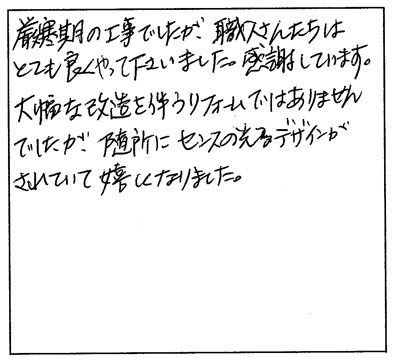 厳寒期の工事でしたが、職人さんたちは
とても良くやって下さいました。感謝しています。
大幅な改造を伴うリフォームではありません
でしたが、随所にセンスの光るデザインが
されていて嬉しくなりました。